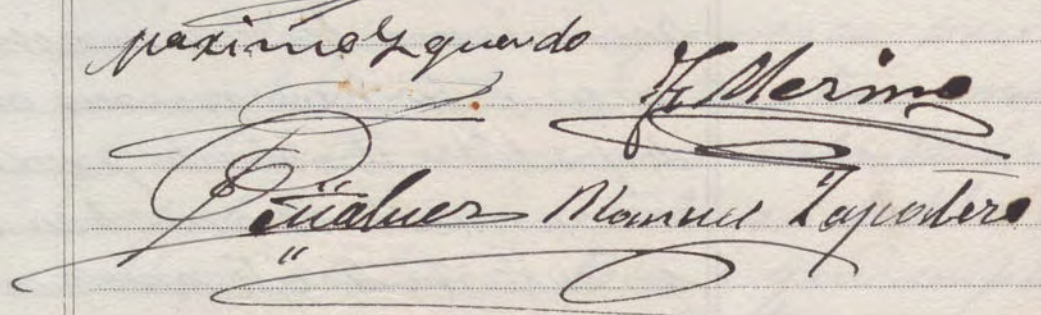 maximo Yzquierdo
Merino
Peñalver Manuel Zapatero